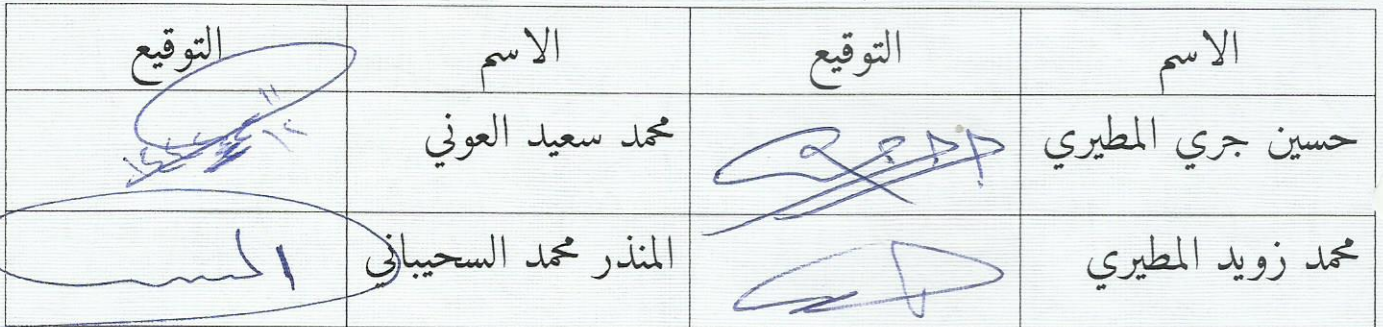 الاسم التوقيع الاسم التوقيع
حسين جري المطيري محمد سعيد العوني
محمد زويد المطيري المنذر محمد السحيباني